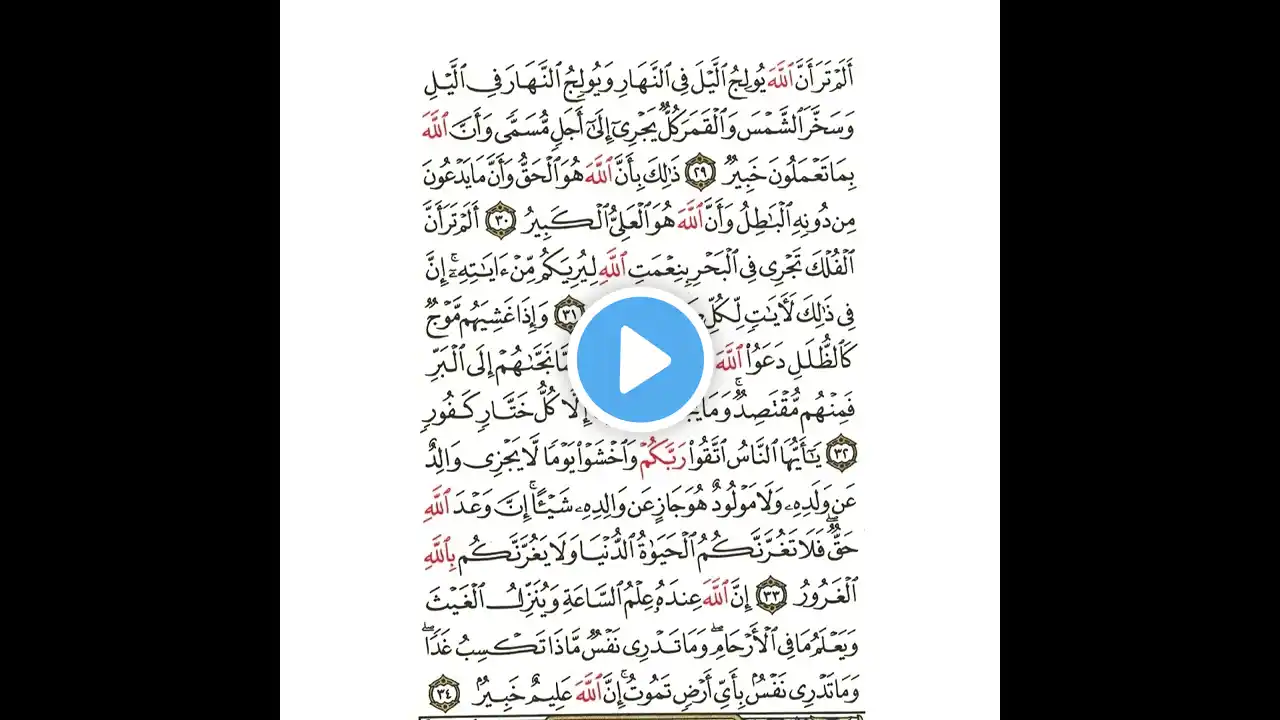 أَلَمۡ تَرَ أَنَّ ٱللَّهَ يُولِجُ ٱلَّيۡلَ فِي ٱلنَّهَارِ وَيُولِجُ ٱلنَّهَارَ فِي ٱلَّيۡلِ
وَسَخَّرَ ٱلشَّمۡسَ وَٱلۡقَمَرَ كُلّٞ يَجۡرِيٓ إِلَىٰٓ أَجَلٖ مُّسَمّٗى وَأَنَّ ٱللَّهَ
بِمَا تَعۡمَلُونَ خَبِيرٞ ٢٩ ذَٰلِكَ بِأَنَّ ٱللَّهَ هُوَ ٱلۡحَقُّ وَأَنَّ مَا يَدۡعُونَ
مِن دُونِهِ ٱلۡبَٰطِلُ وَأَنَّ ٱللَّهَ هُوَ ٱلۡعَلِيُّ ٱلۡكَبِيرُ ٣٠ أَلَمۡ تَرَ أَنَّ
ٱلۡفُلۡكَ تَجۡرِي فِي ٱلۡبَحۡرِ بِنِعۡمَتِ ٱللَّهِ لِيُرِيَكُم مِّنۡ ءَايَٰتِهِۦٓۚ إِنَّ
فِي ذَٰلِكَ لَأٓيَٰتٖ لِّكُلِّ ٣١ وَإِذَا غَشِيَهُم مَّوۡجٞ
كَٱلظُّلَلِ دَعَوُاْ ٱللَّهَ نَجَّىٰهُمۡ إِلَى ٱلۡبَرِّ
فَمِنۡهُم مُّقۡتَصِدٞۚ وَمَا إِلَّا كُلُّ خَتَّارٖ كَفُورٖ
٣٢ يَٰٓأَيُّهَا ٱلنَّاسُ ٱتَّقُواْ رَبَّكُمۡ وَٱخۡشَوۡاْ يَوۡمٗا لَّا يَجۡزِي وَالِدٌ
عَن وَلَدِهِۦ وَلَا مَوۡلُودٌ هُوَ جَازٍ عَن وَالِدِهِۦ شَيۡـًٔاۚ إِنَّ وَعۡدَ ٱللَّهِ
حَقّٞۖ فَلَا تَغُرَّنَّكُمُ ٱلۡحَيَوٰةُ ٱلدُّنۡيَا وَلَا يَغُرَّنَّكُم بِٱللَّهِ
ٱلۡغَرُورُ ٣٣ إِنَّ ٱللَّهَ عِندَهُۥ عِلۡمُ ٱلسَّاعَةِ وَيُنَزِّلُ ٱلۡغَيۡثَ
وَيَعۡلَمُ مَا فِي ٱلۡأَرۡحَامِۖ وَمَا تَدۡرِي نَفۡسٞ مَّاذَا تَكۡسِبُ غَدٗاۖ
وَمَا تَدۡرِي نَفۡسُۢ بِأَيِّ أَرۡضٖ تَمُوتُۚ إِنَّ ٱللَّهَ عَلِيمٌ خَبِيرُۢ ٣٤